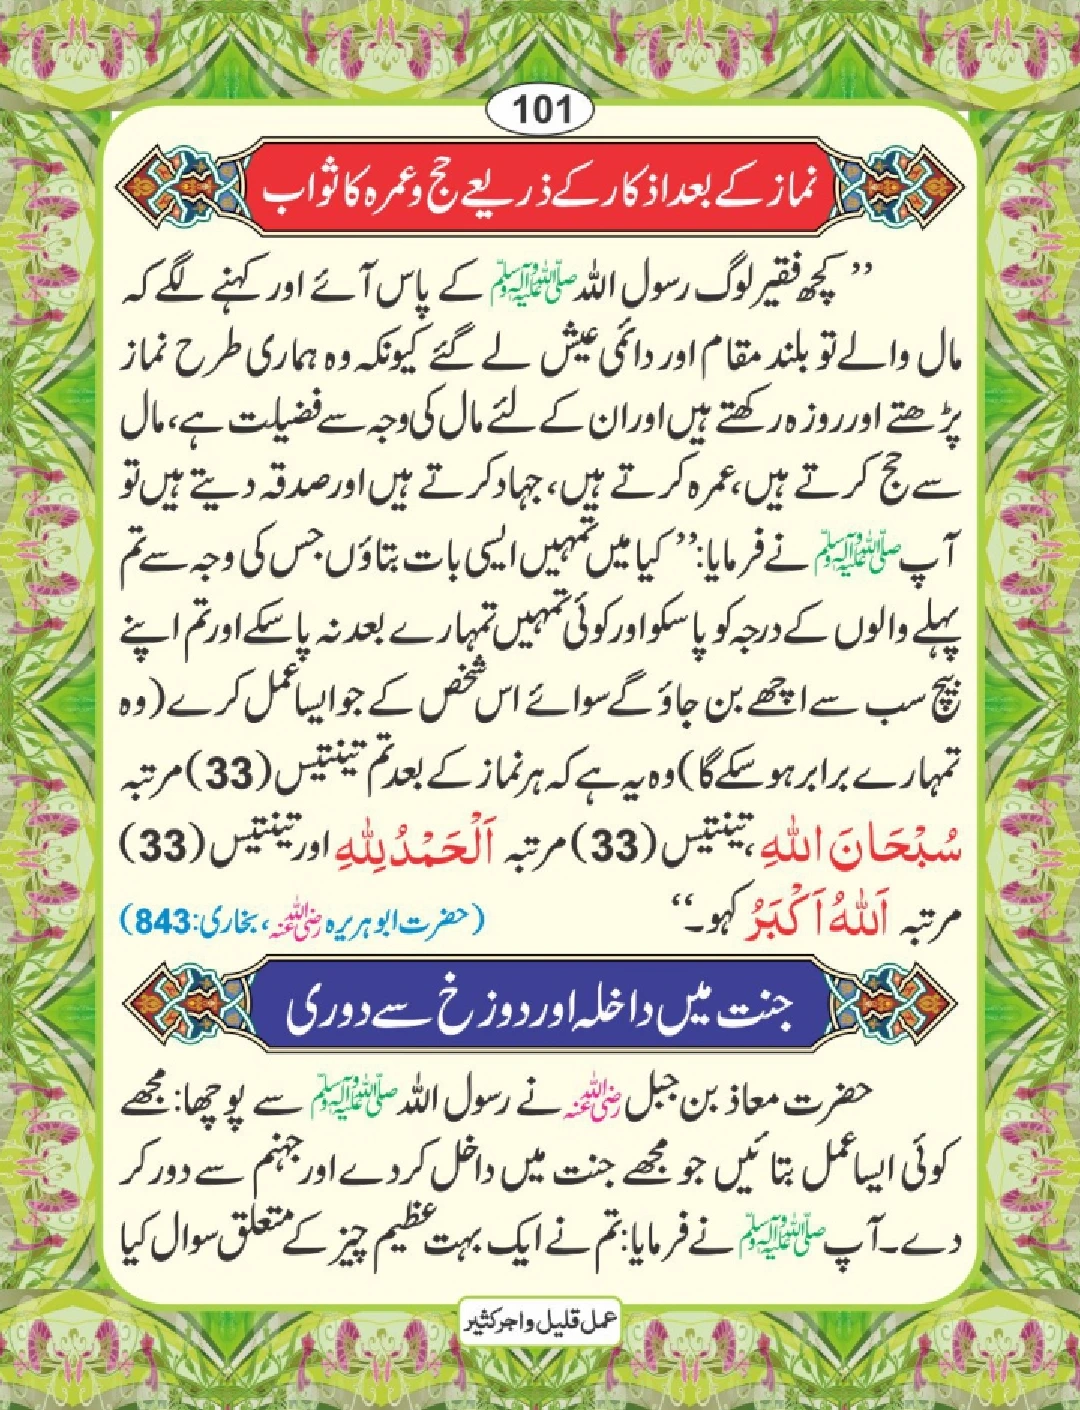 101
نماز کے بعد اذکار کے ذریعے حج و عمرہ کا ثواب
’’ کچھ فقیر لوگ رسول اللہ ﷺ کے پاس آئے اور کہنے لگے کہ
مال والے تو بلند مقام اور دائمی عیش لے گئے کیونکہ وہ ہماری طرح نماز
پڑھتے اور روزہ رکھتے ہیں اور ان کے لئے مال کی وجہ سے فضیلت ہے، مال
سے حج کرتے ہیں، عمرہ کرتے ہیں، جہاد کرتے ہیں اور صدقہ دیتے ہیں تو
آپ ﷺ نے فرمایا: ’’ کیا میں تمہیں ایسی بات بتاؤں جس کی وجہ سے تم
پہلے والوں کے درجہ کو پا سکو اور کوئی تمہیں تمہارے بعد نہ پا سکے اور تم اپنے
بیچ سب سے اچھے بن جاؤ گے سوائے اس شخص کے جو ایسا عمل کرے (وہ
تمہارے برابر ہو سکے گا) وہ یہ ہے کہ ہر نماز کے بعد تم تینتیس (33) مرتبہ
سُبْحَانَ اللهِ، تینتیس (33) مرتبہ اَلْحَمْدُ لِلّٰهِ اور تینتیس (33)
مرتبہ اَللهُ اَكْبَرُ کہو۔‘‘ (حضرت ابو ہریرہ رضی اللہ عنہ، بخاری: 843)
جنت میں داخلہ اور دوزخ سے دوری
حضرت معاذ بن جبل رضی اللہ عنہ نے رسول اللہ ﷺ سے پوچھا: مجھے
کوئی ایسا عمل بتائیں جو مجھے جنت میں داخل کر دے اور جہنم سے دور کر
دے۔ آپ ﷺ نے فرمایا: تم نے ایک بہت عظیم چیز کے متعلق سوال کیا
عمل قلیل و اجر کثیر